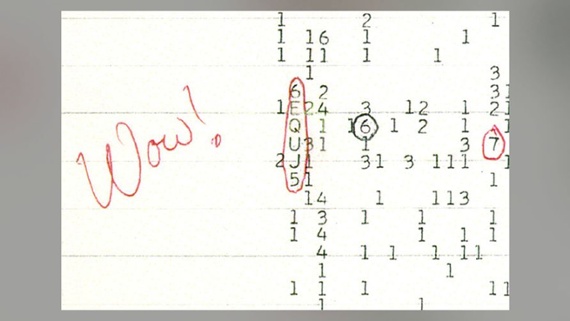 1 2 1
1 16 1 1
1 11 1 1
1 3
6 2 31
1 E 24 3 12 1 21
Wow!
Q 1 16 1 2 1 1
U 31 1 3 7
2 J 1 31 3 111 1
5 1 1
14 1 113
1 3 1 1 1
1 4 1 1 1
4 1 1 1 11
1 1
1 1 1 11
1 1